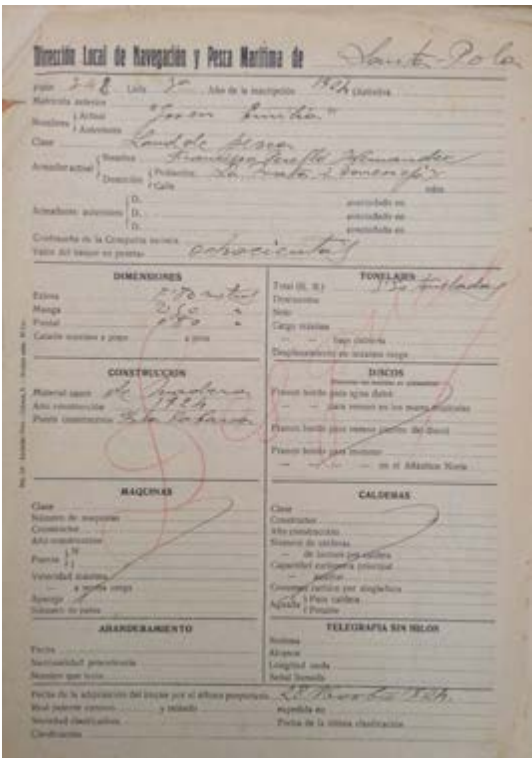 Dirección Local de Navegación y Pesca Marítima de Santa-Pola
Folio 248 Lista 3ª Año de la inscripción 1924
Matrícula anterior
Nombres Actual "Joven Emilia"
Anteriores
Clase Laud de pesca
Armador actual Nombre Francisco Hernandez
Domicilio Población La Mata
Calle núm.
Armadores anteriores D. avecindado en
D. avecindado en
D. avecindado en
Contraseña de la Compañía naviera
Valor del buque en pesetas ochocientas
DIMENSIONES
Eslora metros
Manga 2'50 "
Puntal 0'80 "
Calado máximo a popa a proa
CONSTRUCCION
Material casco de madera
Año construcción 1924
Punto construcción
MAQUINAS
Clase
Número de máquinas
Constructor
Año construcción
Fuerza N
I
Velocidad máxima
— a carga
Aparejo
Número de palos
ABANDERAMIENTO
Fecha
Nacionalidad procedencia
Nombre que tenía
TONELAJES
Total (R. B.) toneladas
Descuentos
Neto
Carga máxima
— — bajo cubierta
Desplazamiento en máxima carga
DISCOS
Franco bordo para agua dulce
— — para verano en los mares tropicales
Franco bordo para verano
Franco bordo para invierno
— — — en el Atlántico Norte
CALDERAS
Clase
Constructor
Año construcción
Número de calderas
— de hornos por caldera
Capacidad carbonera principal
— auxiliar
Consumo carbón por singladura
Aguada Para caldera
Potable
TELEGRAFIA SIN HILOS
Sistema
Alcance
Longitud onda
Señal llamada
Fecha de la adquisición del buque por el último propietario 28 1924.
Real patente número y rolado expedida en
Sociedad clasificadora Fecha de la última clasificación
Clasificación